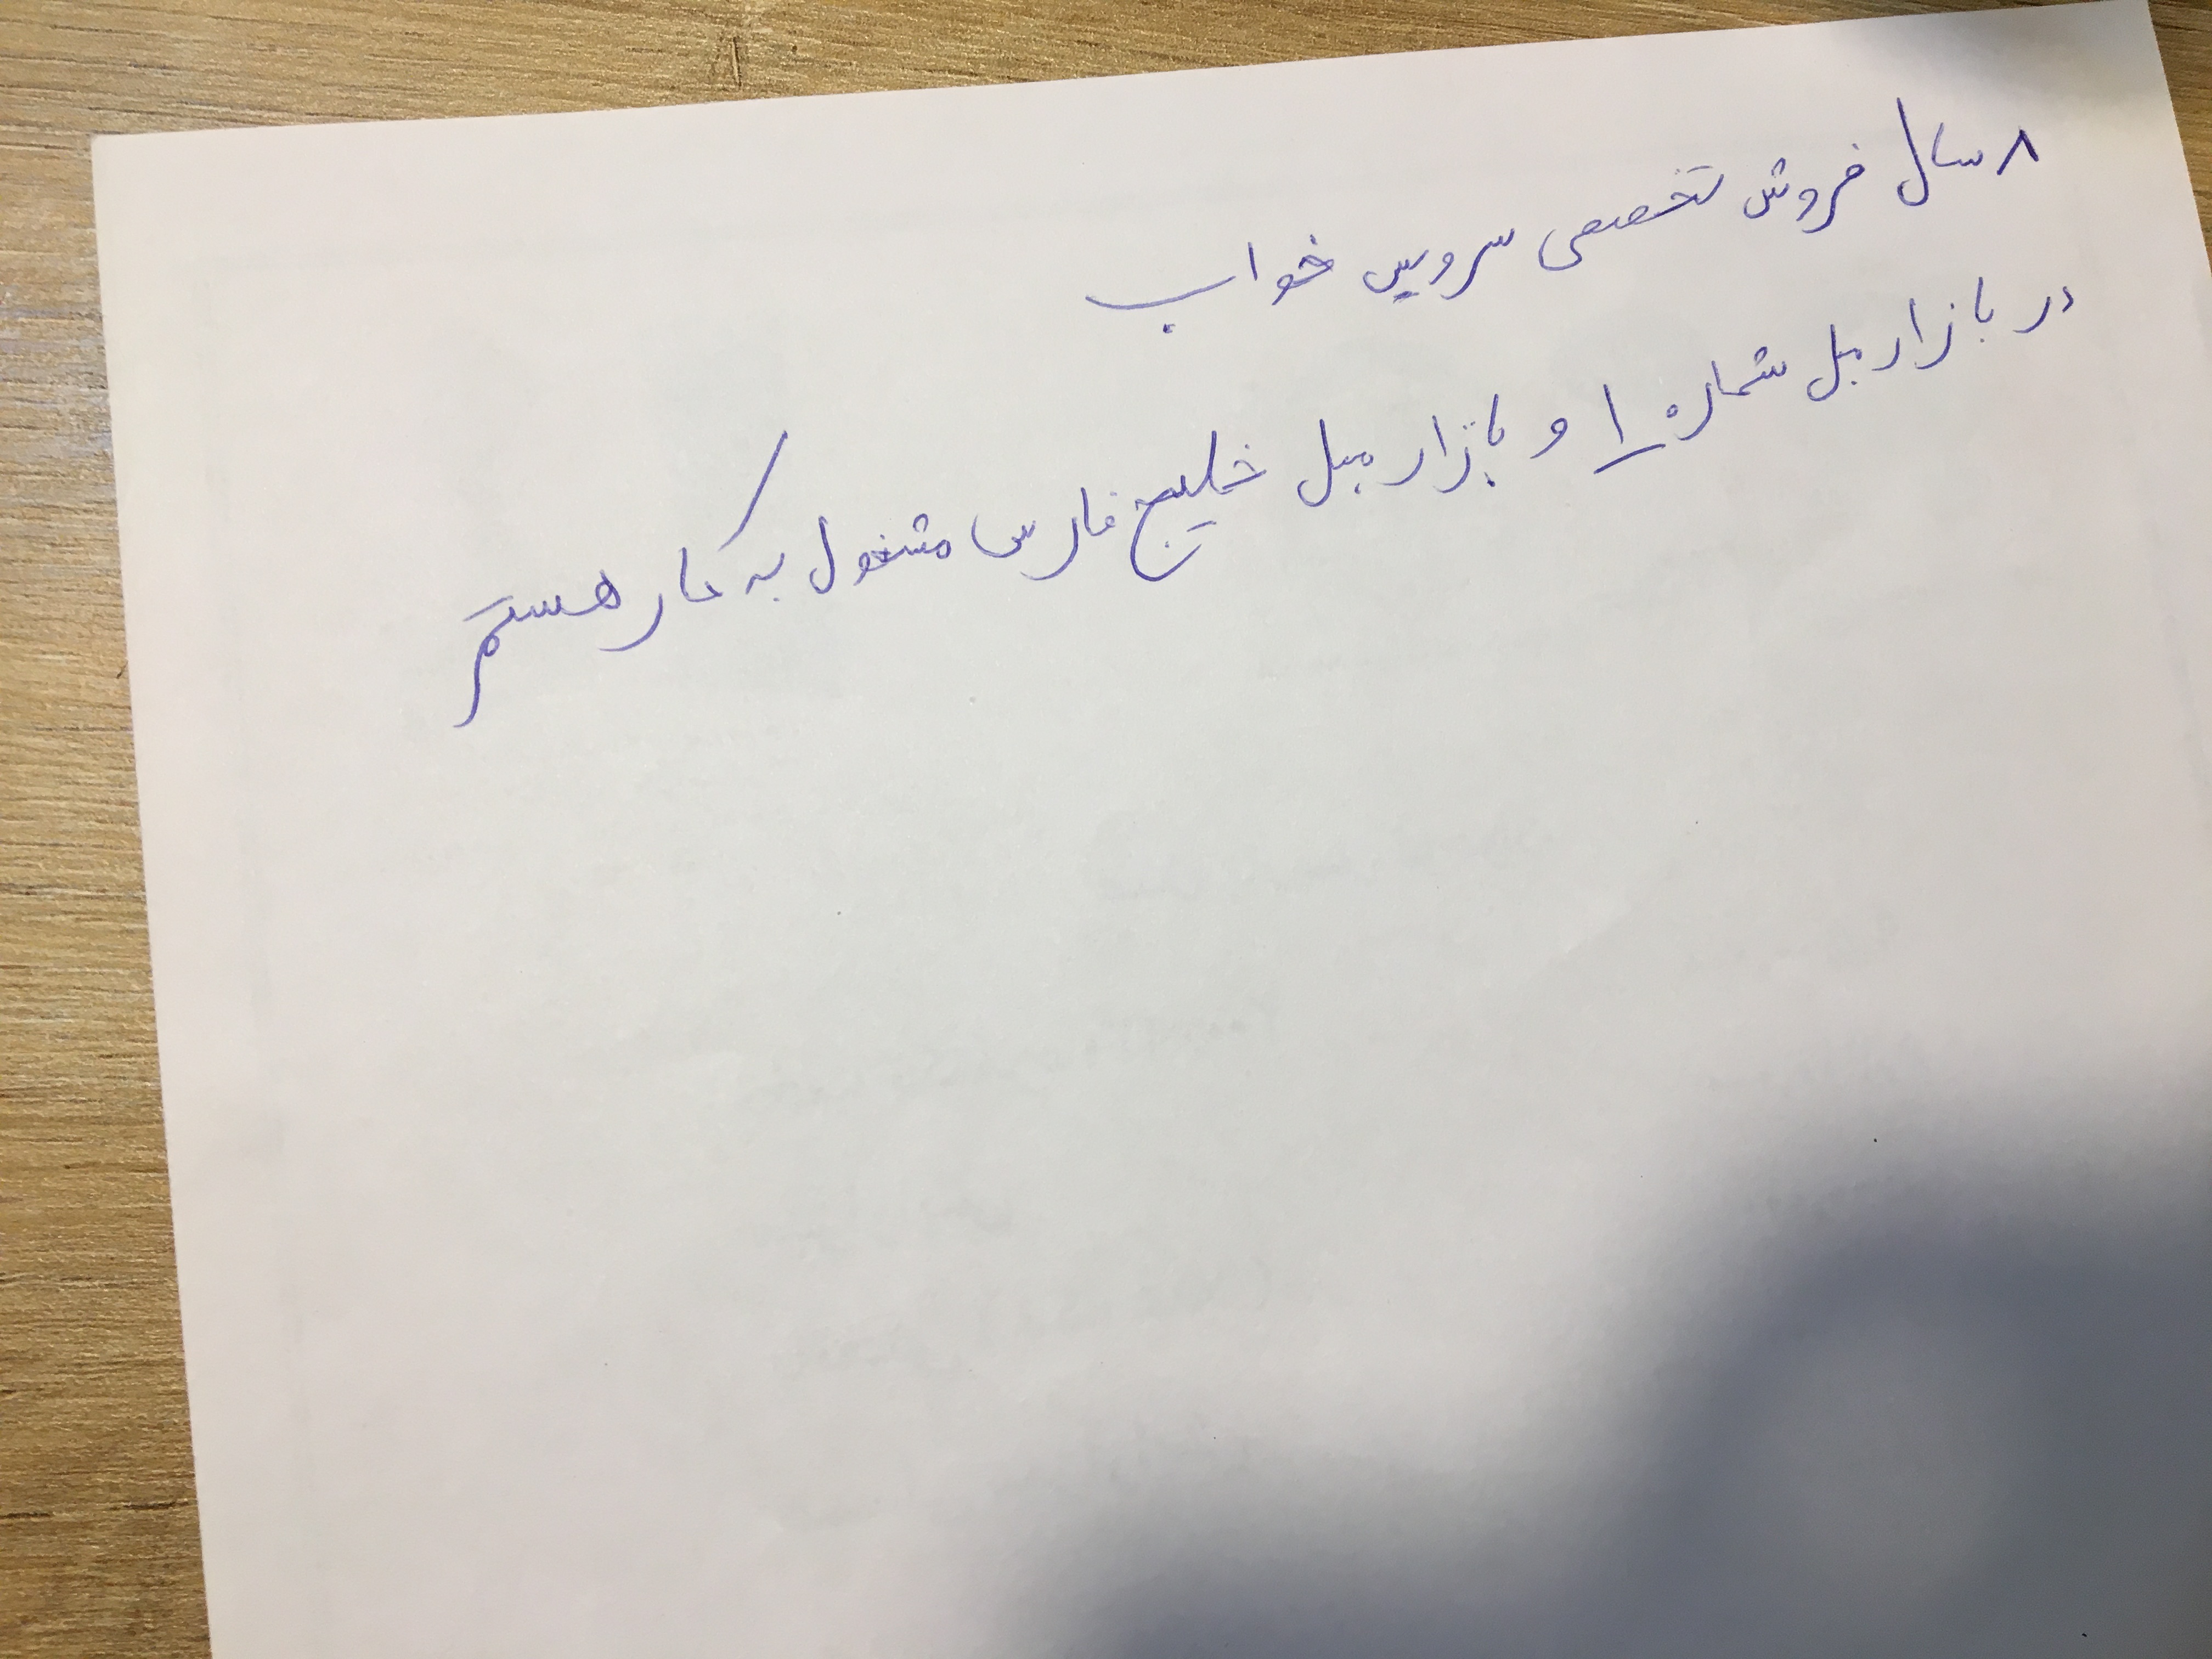 ۸ سال فروش تخصصی سرویس خواب
در بازار مبل شماره ۱ و بازار مبل خلیج فارس مشغول به کار هستم